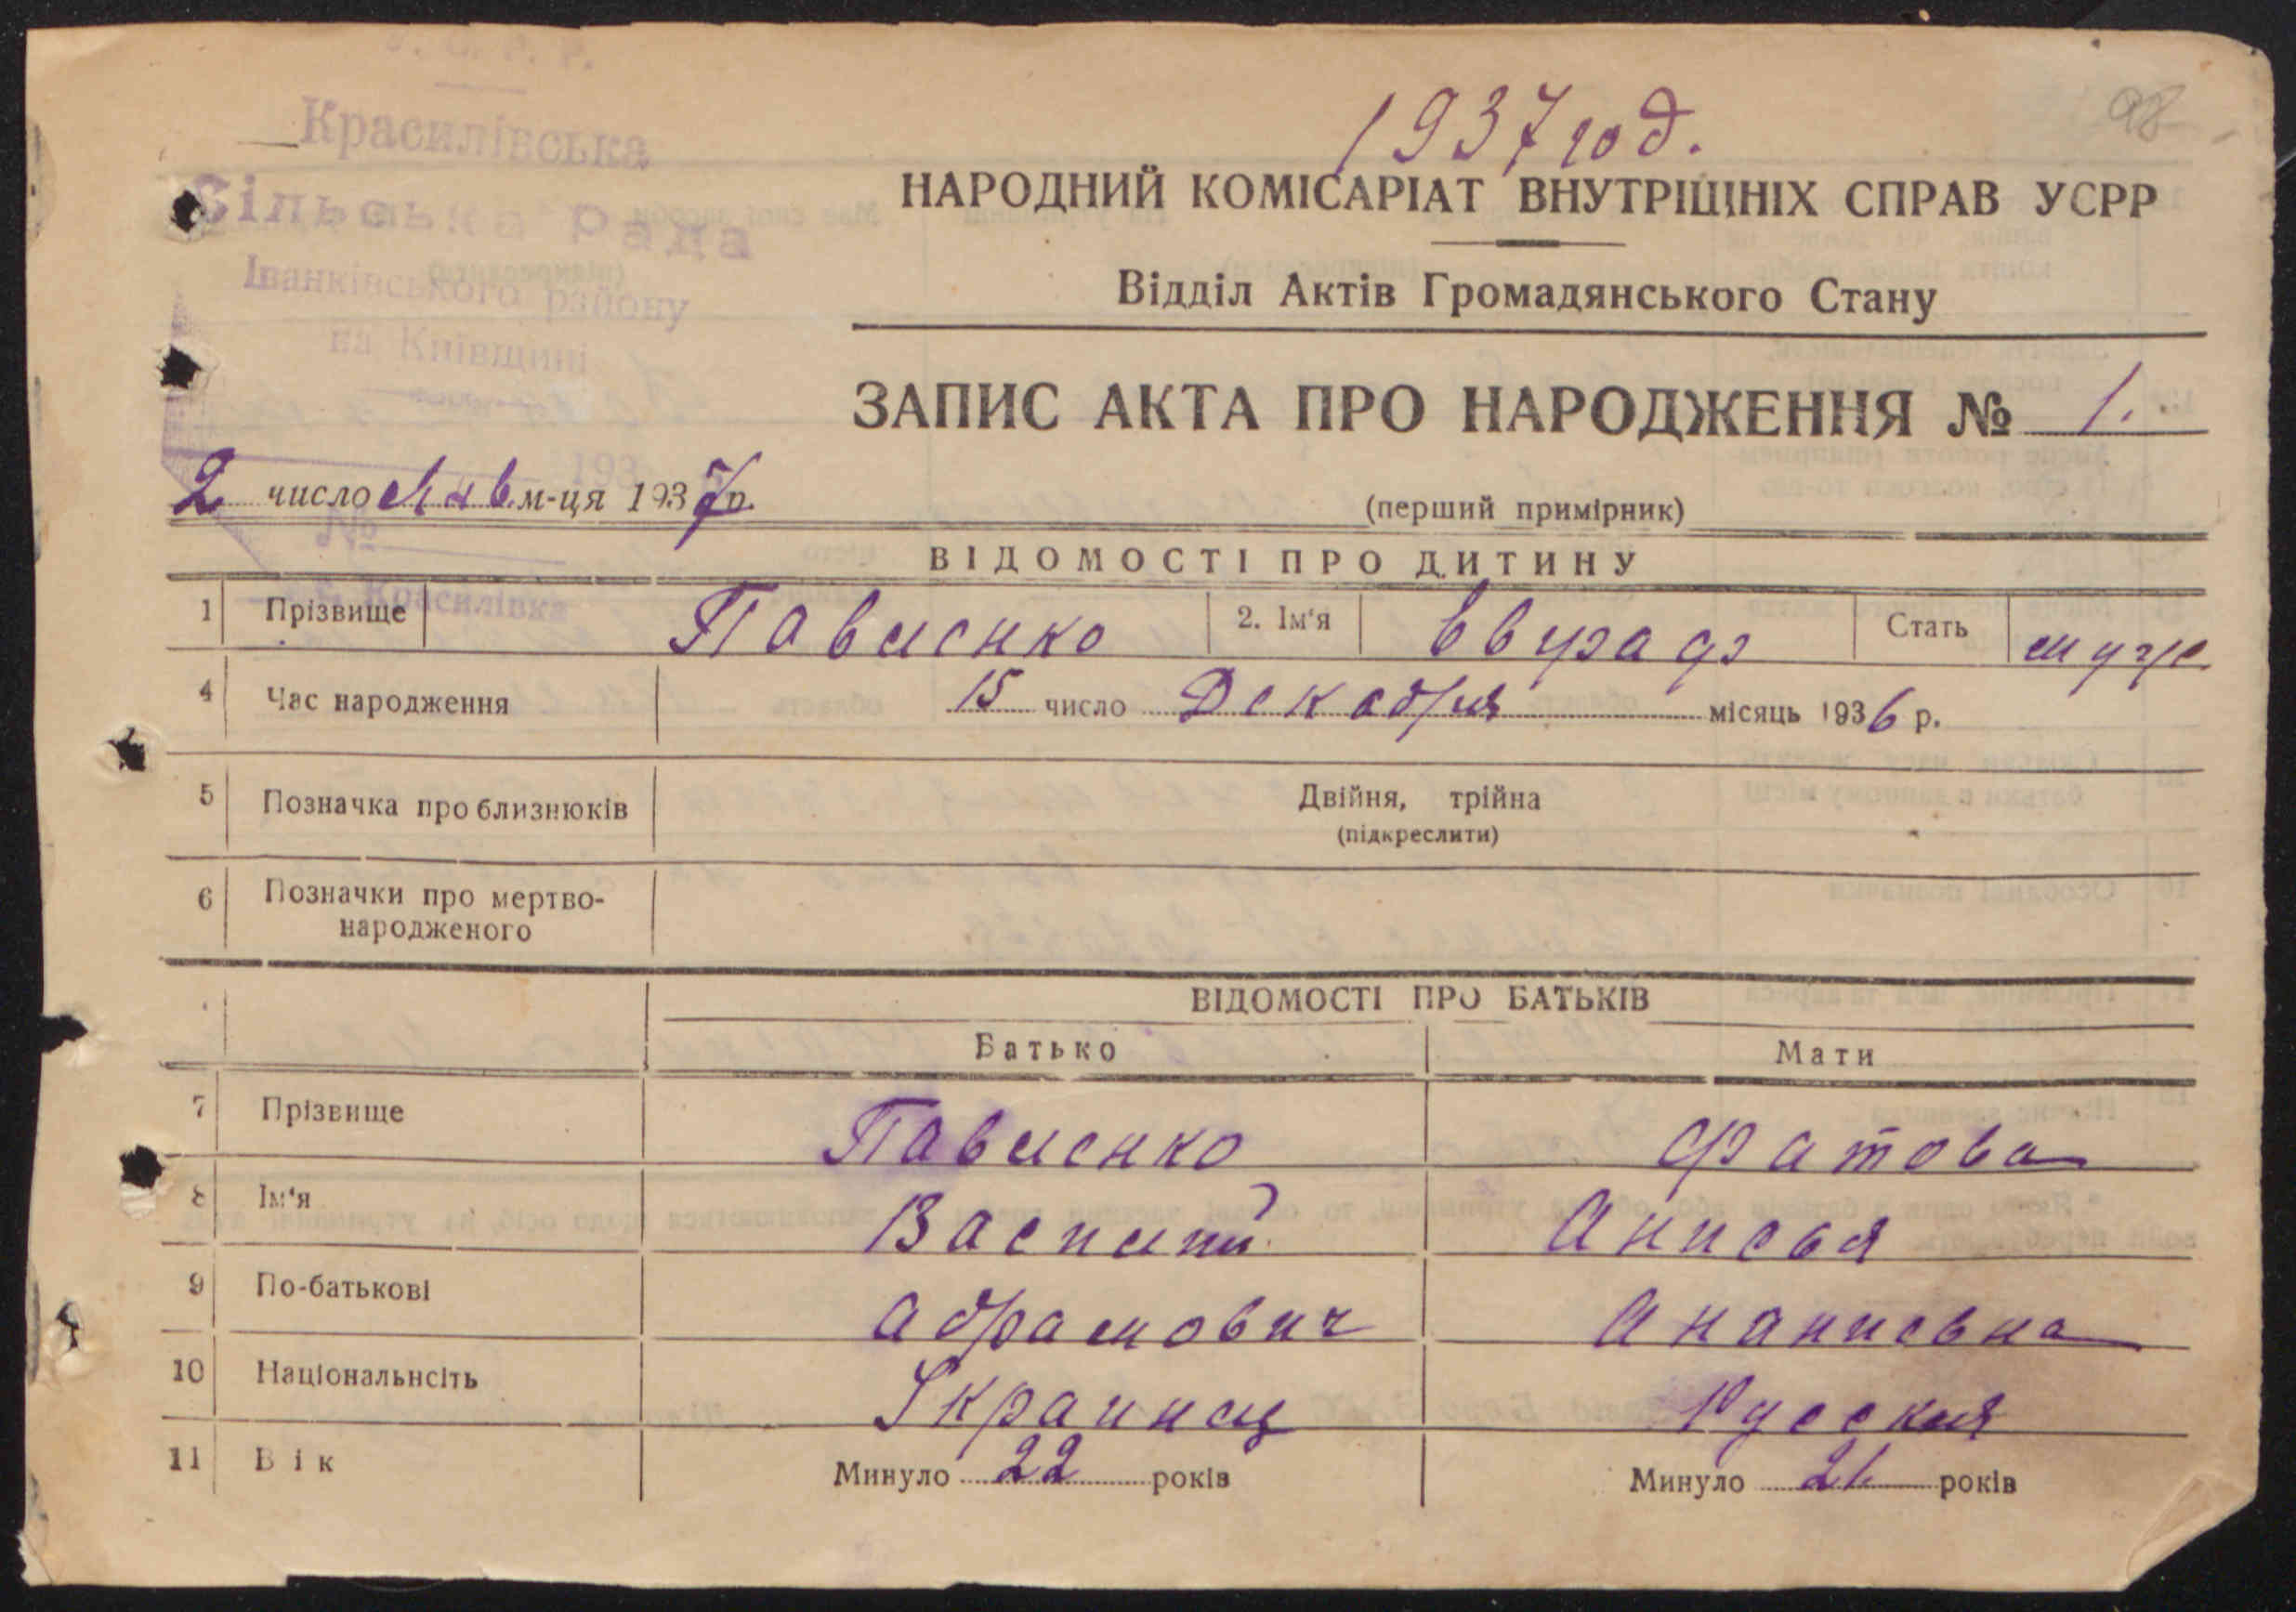 У. С. Р. Р.
Красилівська
Сільська Рада
Іванківського району
на Київщині
193
№
с. Красилівка
98
1937 год.
НАРОДНИЙ КОМІСАРІАТ ВНУТРІШНІХ СПРАВ УСРР
Відділ Актів Громадянського Стану
ЗАПИС АКТА ПРО НАРОДЖЕННЯ № 1.
2 число Янв. м-ця 1937 р.
(перший примірник)
ВІДОМОСТІ ПРО ДИТИНУ
1 Прізвище Павленко 2. Ім'я Стать муж
4 Час народження 15 число Декабря місяць 1936 р.
5 Позначка про близнюків Двійня, трійна
(підкреслити)
6 Позначки про мертво-
народженого
ВІДОМОСТІ ПРО БАТЬКІВ
Батько Мати
7 Прізвище Павленко Фатова
8 Ім'я Василий Анисья
9 По-батькові Абрамович Ананиевна
10 Національнсіть Украинец Русская
11 Вік Минуло 22 років Минуло 21 років